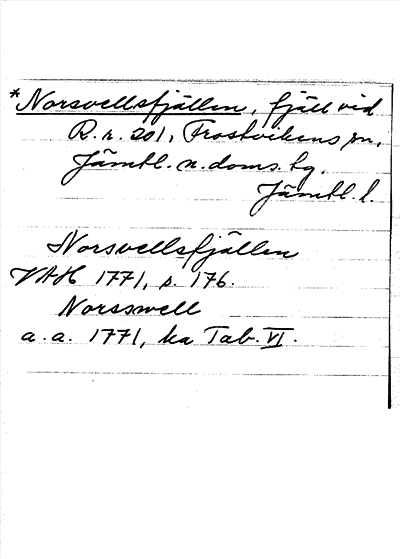 *Norsvellsfjällen, fjäll vid
R.r. 201, Frostvikens sn,
Jämtl. n. doms. tg.
Jämtl. l.
Norsvellsfjällen
VAH 1771, s. 176.
Norsswell
a. a. 1771, ka Tab. VI.